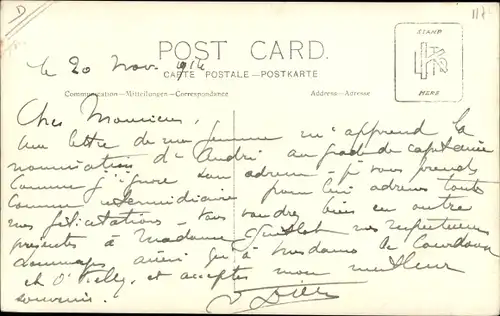 D
117
POST CARD.
CARTE POSTALE—POSTKARTE
STAMP
HERE
Communication—Mitteilungen—Correspondance
Address—Adresse
le 20 Nov. 1914
Cher Monsieur,
Une lettre de ma femme m'apprend la
nomination d'André au grade de capitaine
Comme j'ignore son adresse - je vous prends
comme intermédiaire pour lui adresser toutes
nos félicitations - vous voudrez bien en outre
présenter à Madame nos respectueux
hommages ainsi qu'à Mesdames de
et et acceptez mon meilleur
souvenir.